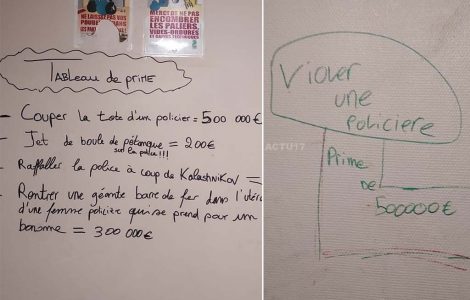 NE LAISSEZ PAS VOS
DANS LES
MERCI DE NE PAS
ENCOMBRER
LES PALIERS,
VIDES-ORDURES
ET GAINES TECHNIQUES
TABLEAU DE PRIME
- Couper la tete d'un policier = 500 000€
- Jet de boule de pétanque = 200€
sur la police!!!
- Raffaller la police à coup de Kalashnikov =
- Rentrer une géante barre de fer dans l'utéru
d'une femme policière qui se prend pour un
bonomme = 300 000€
Violer
une
policiere
ACTU17
Prime
DE
500000€